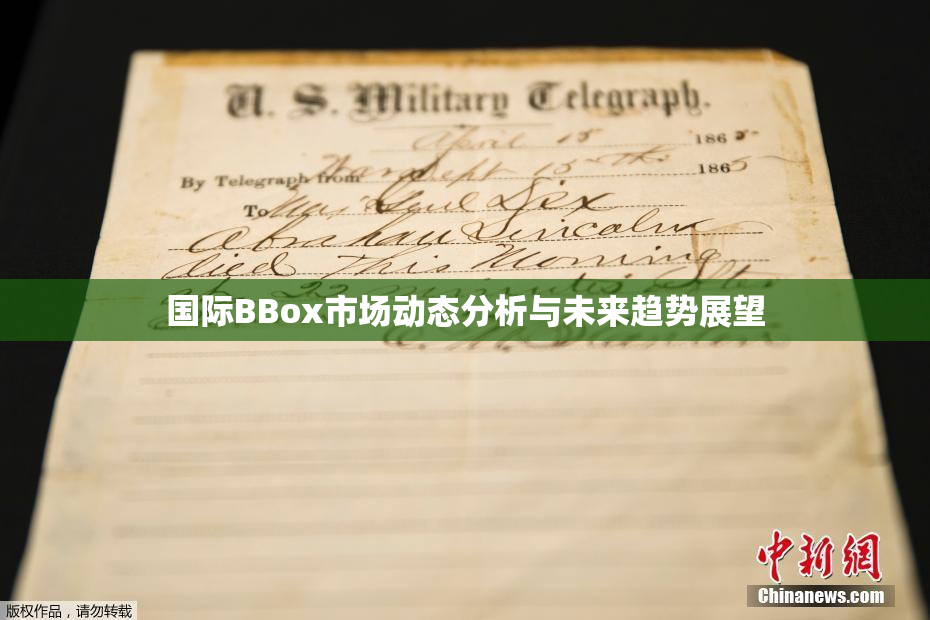 U. S. Military Telegraph.
April 15 1865
By Telegraph from War Dept 15th 1865
To Maj Genl Dix
Abraham Lincoln
died This Morning
at 22 minutes after
国际BBox市场动态分析与未来趋势展望
E. M. Stanton
中新網
Chinanews.com
版权作品,请勿转载